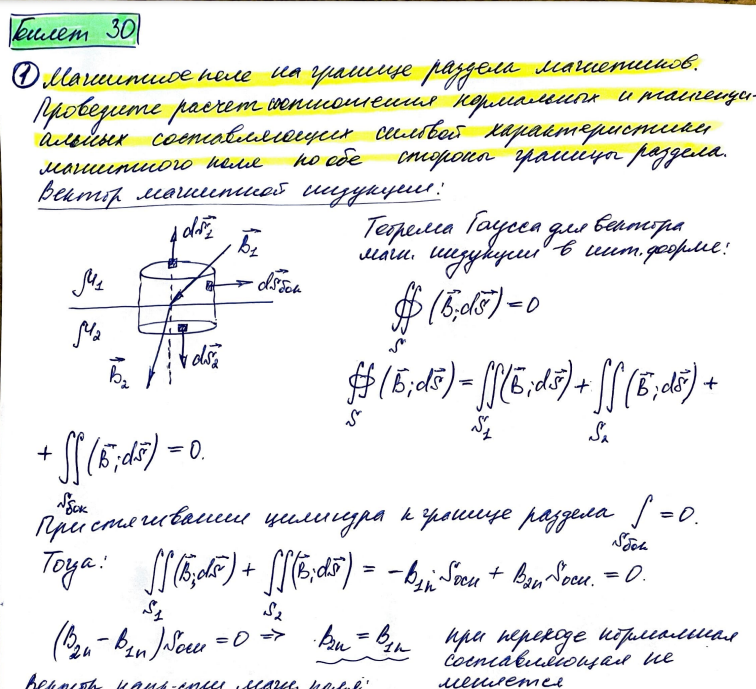 Билет 30
① Магнитное поле на границе раздела магнетиков.
Проведите расчет соотношения нормальных и тангенци-
альных составляющих силовой характеристики
магнитного поля по обе стороны границы раздела.
Вектор магнитной индукции:
dS⃗₁
B⃗₁
dS⃗бок
μ₁
μ₂
B⃗₂
dS⃗₂
Теорема Гаусса для вектора
магн. индукции в инт. форме:
∯_S (B⃗; dS⃗) = 0
∯_S (B⃗; dS⃗) = ∬_S₁ (B⃗; dS⃗) + ∬_S₂ (B⃗; dS⃗) +
+ ∬_Sбок (B⃗; dS⃗) = 0.
При стягивании цилиндра к границе раздела ∫_Sбок = 0.
Тогда: ∬_S₁ (B⃗; dS⃗) + ∬_S₂ (B⃗; dS⃗) = -B₁ₙ·Sосн + B₂ₙSосн. = 0.
(B₂ₙ - B₁ₙ)Sосн = 0 => B₂ₙ = B₁ₙ при переходе нормальная
составляющая не
меняется
Вектор напр-сти магн. поля: